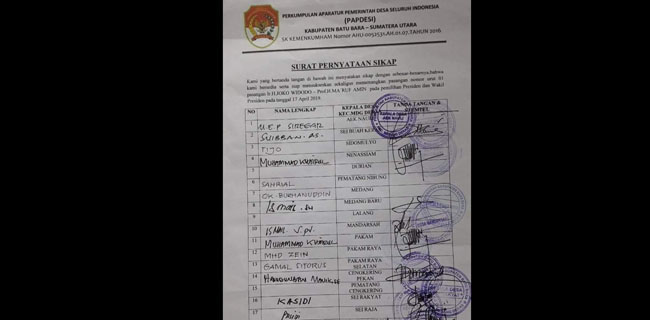 PERKUMPULAN APARATUR PEMERINTAH DESA SELURUH INDONESIA
(PAPDESI)
KABUPATEN BATU BARA – SUMATERA UTARA
SK KEMENKUMHAM Nomor AHU-0052531.AH.01.07.TAHUN 2016
SURAT PERNYATAAN SIKAP
Kami yang bertanda tangan di bawah ini menyatakan sikap dengan sebenar-benarnya,bahwa
kami bersedia serta siap mendukung sekaligus memenangkan pasangan nomor urut 01
pasangan Ir H.JOKO WIDODO – Prof.H.MA'RUF AMIN pada pemilihan Presiden dan Wakil
Presiden pada tanggal 17 April 2019.
NO NAMA LENGKAP KEPALA DESA KEC.MDG DERAS TANDA TANGAN & STEMPEL
1 M.E.P SIREGAR AEK NAUH
2 SUIBBAN. AS. SEI BUAH KERAS
3 TIJO SIDOMULYO
4 MUHAMMAD KHAIRUL NENASSIAM
5 DURIAN
6 SAHRIAL PEMATANG NIBUNG
7 OK. BURHANUDDIN MEDANG
8 Ismail. MEDANG BARU
LALANG
10 ISMAIL MANDARSAH
11 MUHAMMAD KHAIRUL PAKAM
12 MHD ZEIN PAKAM RAYA
13 GAMAL SITORUS PAKAM RAYA SELATAN
14 CENGKERING PEKAN
PEMATANG CENGKERING
16 KASIDI SEI RAKYAT
17 SEI RAJA